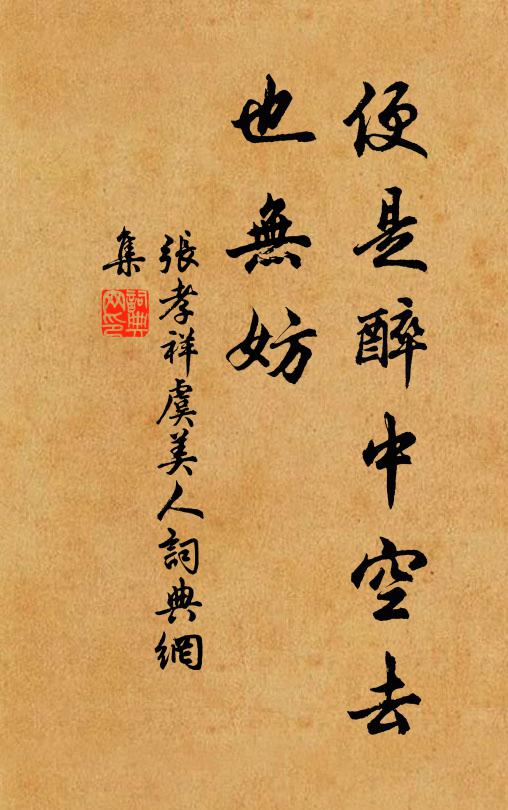 便是醉中空去
也無妨
張孝祥虞美人詞典網
集
詞典
網印